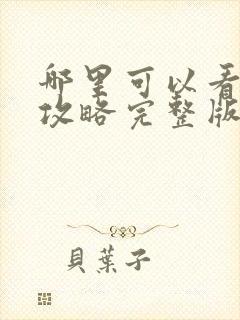 哪里可以看
攻略完整版
貝葉子